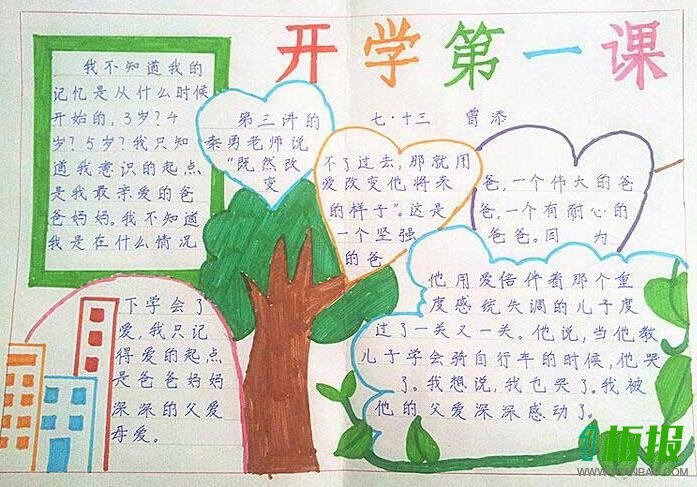 开学第一课
七·十三 曾添
我不知道我的
记忆是从什么时候
开始的，3岁？4
岁？5岁？我只知
道我意识的起点
是我最亲爱的爸
爸妈妈。我不知道
我是在什么情况
下学会了
爱，我只记
得爱的起点
是爸爸妈妈
深深的父爱
母爱。
第三讲的
秦勇老师说
“既然改
变
不了过去，那就用
爱改变他将来
的样子”。这是
一个坚强
的爸
爸，一个伟大的爸
爸，一个有耐心的
爸爸。因为
他用爱陪伴着那个重
度感统失调的儿子度
过了一关又一关。他说，当他教
儿子学会骑自行车的时候，他哭
了。我想说，我也哭了。我被
他的父爱深深感动了。
板报